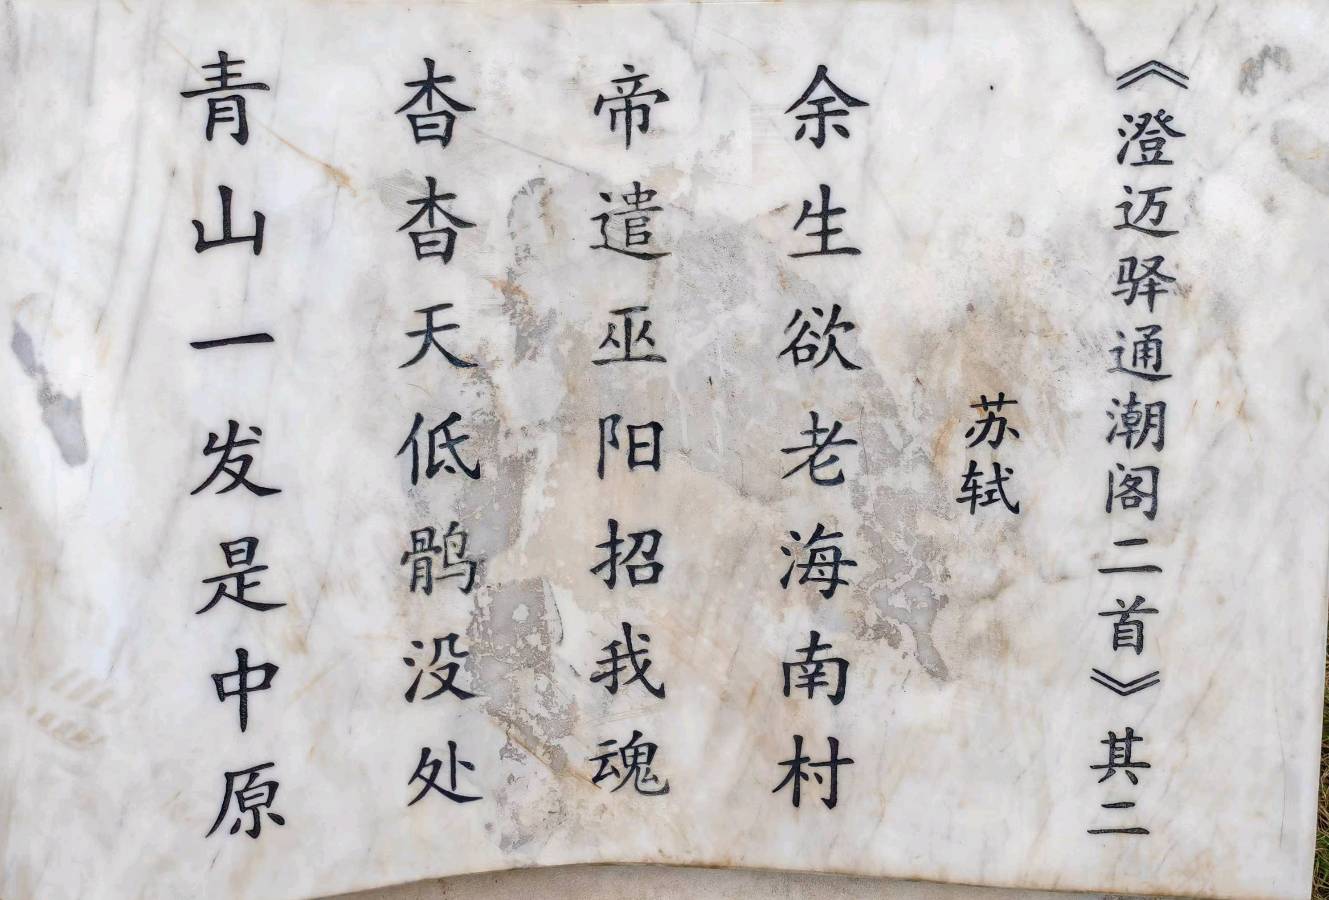 《澄迈驿通潮阁二首》其二
苏轼
余生欲老海南村
帝遣巫阳招我魂
杳杳天低鹘没处
青山一发是中原